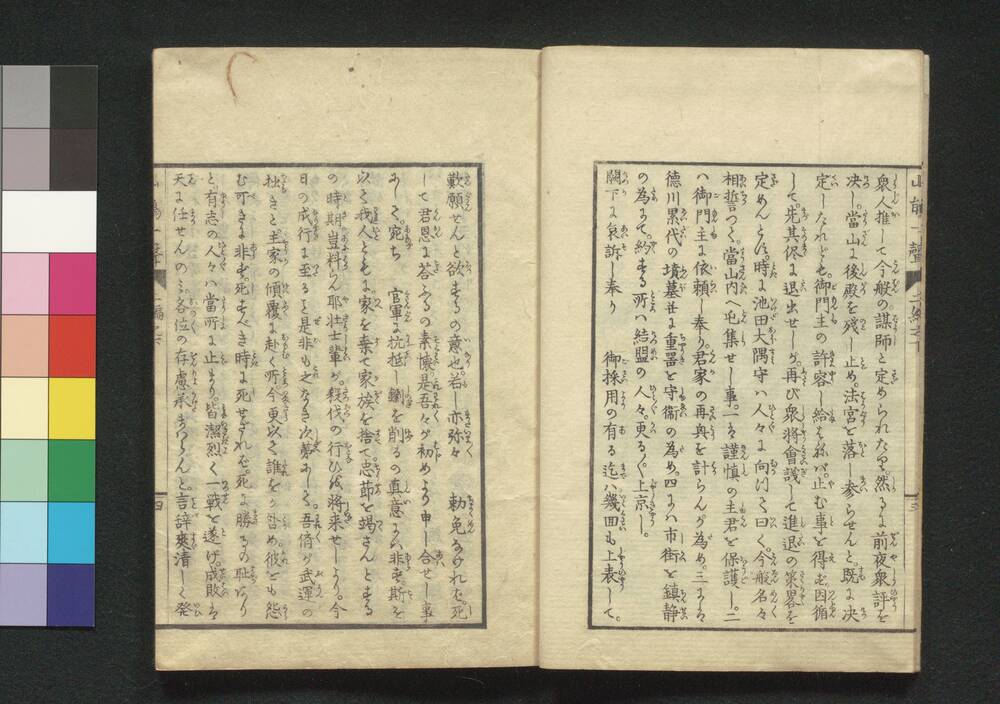 衆人推して今般の謀師と定められたり。然るに前夜衆評を
決し。當山に後殿を殘し止め。法宮を落し参らせんと。既に决
定したれども。御門主の許容し給はねバ。止む事を得ず因循
して。先其侭に退出せしが。再び衆將會議して進退の策畧を
定めんとす。時に池田大隅守ハ人々に向ひて曰く。今般名々
相誓つて。當山内へ屯集せし事。一は謹慎の主君を保護し。二
ハ御門主に依頼し奉り。君家の再興を計らんが為め。三には
德川累代の墳墓并に重器を守衛の為め。四にハ市街を鎮静
の為にて。約する所ハ結盟の人々。更る〴〵上京し。
闕下に哀訴し奉り　御採用の有る迄ハ幾回も上表して。
歎願せんと欲するの意也。若し亦弥々　勅免なければ死
して君恩に荅ふるの素懐。是吾々が初めより申し合せし事
あして。宛ち　官軍に抗抵し鎬を削るの真意にハ非ず。斯を
以て我人ともに。家を棄て家族を捨て。忠節を竭さんとする
の時期。豈料らん耶壮士輩が。殺伐の行ひ。を將来せしより。今
日の成行に至る。を是非も之なき次第あして。吾儕が武運の
拙きと。主家の傾覆に赴く所。今更以て誰をか咎め。彼をも怨
む可きに非ず。死すべき時に死せざれば。死に勝るの恥あり
と。有志の人々ハ當所に止まり。皆潔烈く一戰を遂げ。成敗は
天に任せんのミ。各位の存慮承まハらんと。言辞爽清しく発